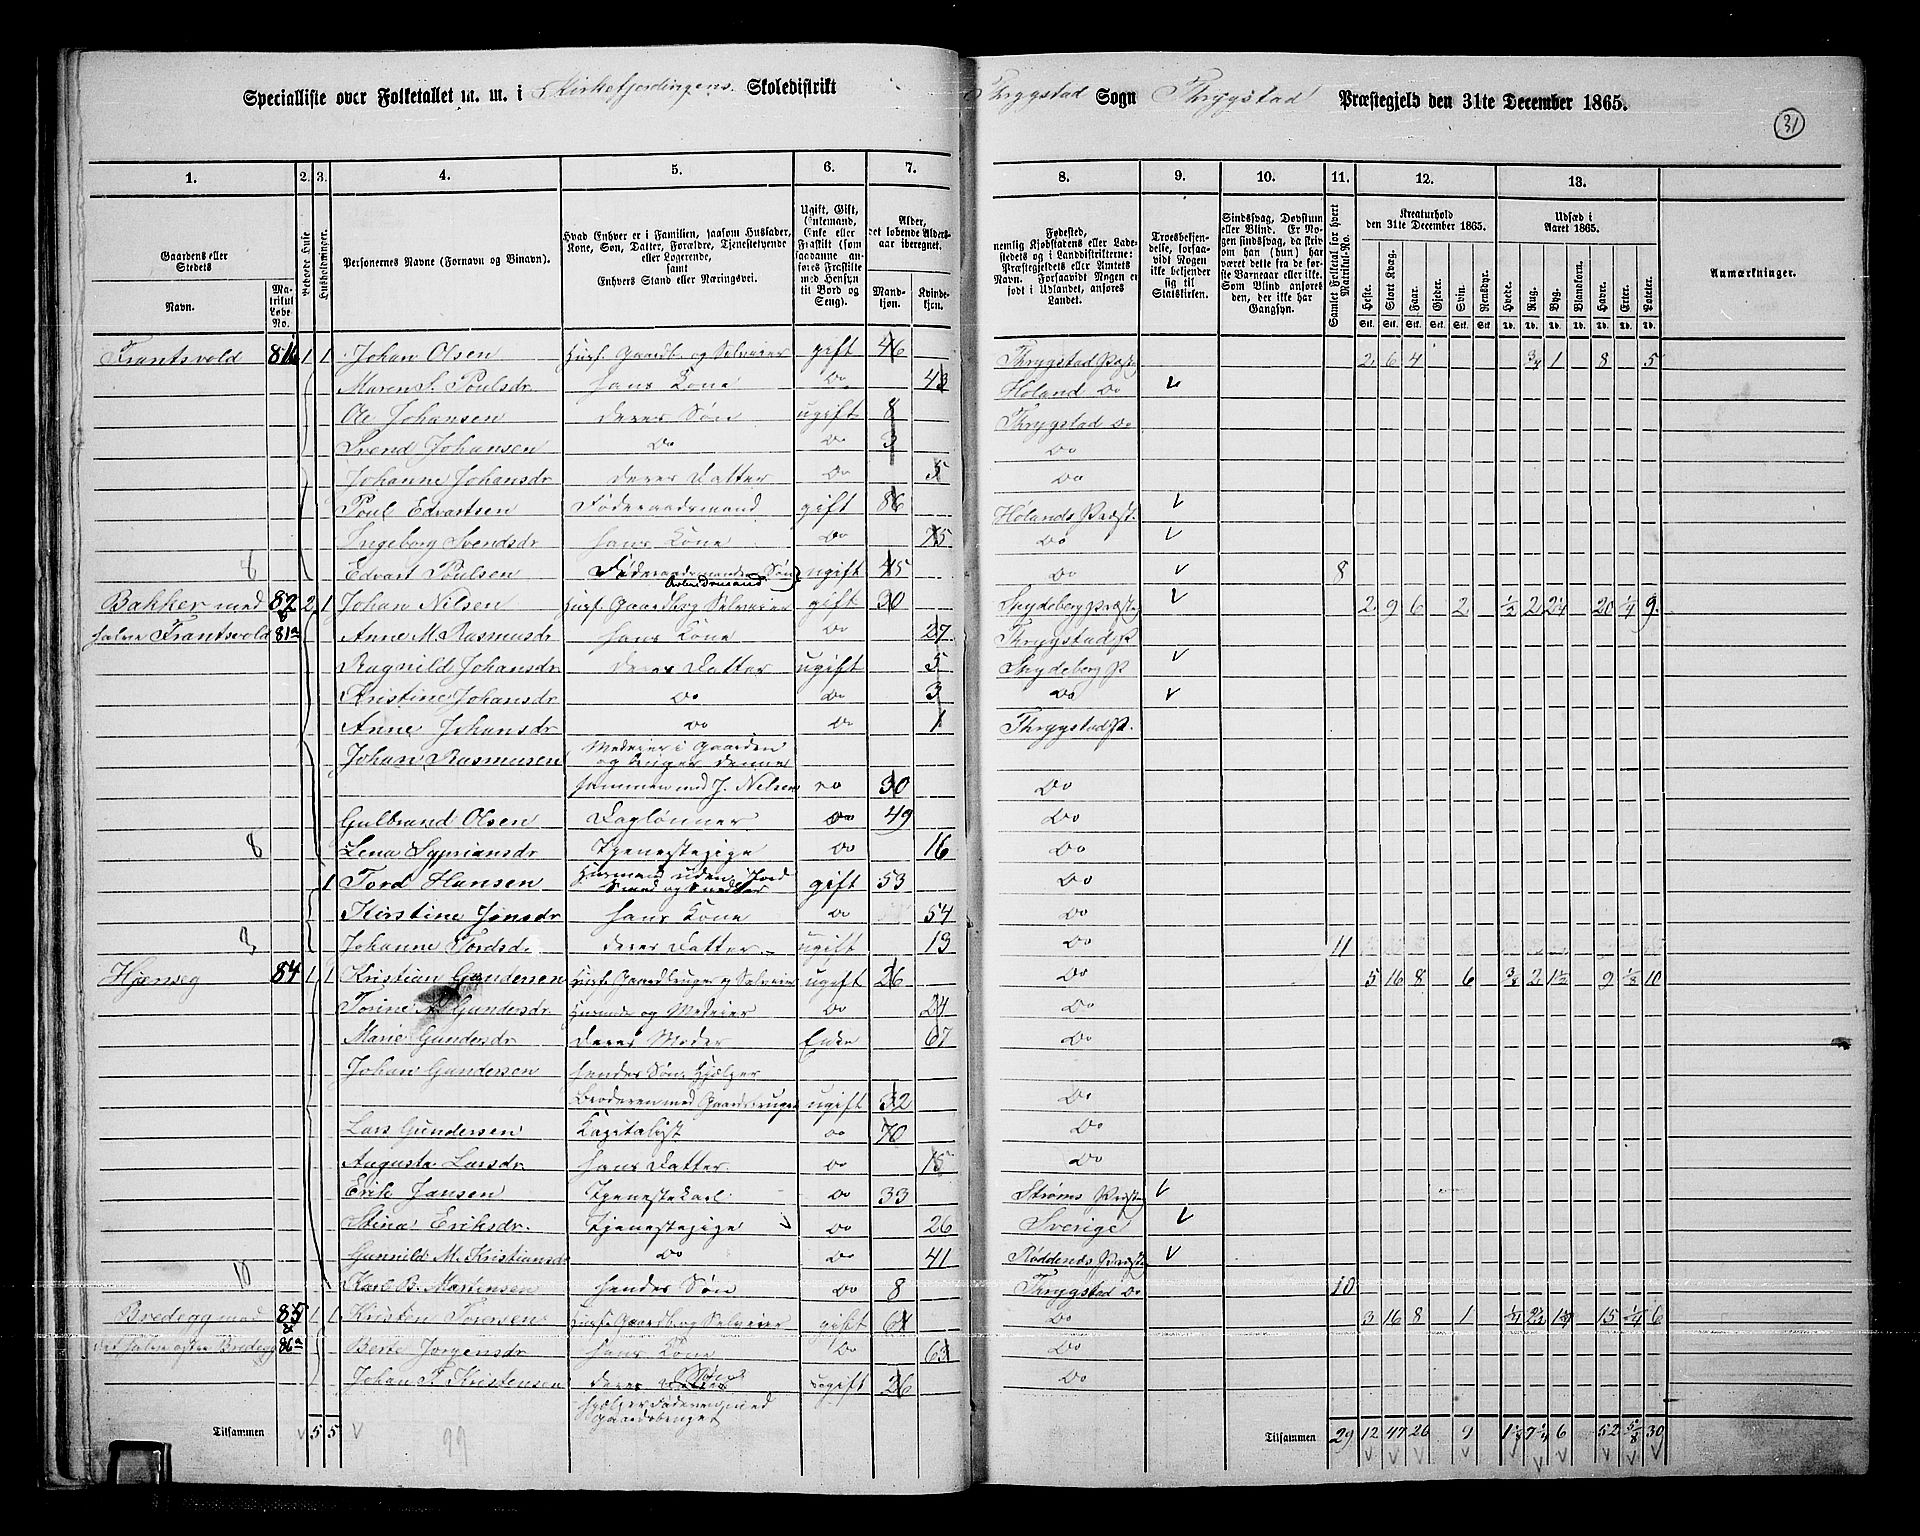 Specialliste over Folketallet m. m. i Kirkefjordingens Skoledistrikt
Thrygstad Sogn Thrygstad Præstegjeld den 31te December 1865.
31
1. 2. 3. 4. 5. 6. 7. 8. 9. 10. 11. 12. 13.
Gaardens eller Stedets
Navn.
Matrikul Løbe-No.
Beboede Huse
Husholdninger.
Personernes Navne (Fornavn og Binavn).
Hvad Enhver er i Familien, saasom Husfader, Kone, Søn, Datter, Forældre, Tjenestetyende eller Logerende,
samt
Enhvers Stand eller Næringsvei.
Ugift, Gift, Enkemand, Enke eller Fraskilt (som saadanne anføres Fraskilte med Hensyn til Bord og Seng).
Alder, det løbende Aldersaar iberegnet.
Mandkjøn.
Kvindekjøn.
Fødested,
nemlig Kjøbstadens eller Ladestedets og i Landdistrikterne: Præstegjeldets eller Amtets Navn. Forsaavidt Nogen er født i Udlandet, anføres Landet.
Troesbekjendelse, forsaavidt Nogen ikke bekjender sig til Statskirken.
Sindssvag, Døvstum eller Blind. Er Nogen sindssvag, da skrives om han (hun) har været dette fra de første Barneaar eller ikke. Som Blind ansøres den, der ikke har Gangsyn.
Samlet Folketal for hvert Matrikul-No.
Kreaturhold den 31te December 1865.
Heste. Stort Kvæg. Faar. Gjeder. Svin. Rensdyr.
Udsæd i Aaret 1865.
Hvede. Rug. Byg. Blandkorn. Havre. Erter. Poteter.
Anmærkninger.
Frantsvold 1 1 Johan Olsen Husf. Gaardb. og Selveier gift 46 Thrygstad Præstg 2 6 4 3/4 1 8 5
Maren S. Poulsdr hans Kone Do 43 Høland Do
Ole Johansen deres Søn ugift 8 Thrygstad Do
Svend Johansen Do Do 3 Do
Johanne Johansdr deres Datter Do 5 Do
Poul Edvartsen Føderaadsmand gift 86 Hølands Præst.
Ingeborg Svendsdr hans Kone Do 75 Do
8 Edvart Poulsen Føderaadsmandens Søn Arbeidsmand ugift 45 Do 8
Bakker med 82 2 1 Johan Nilsen Husf. Gaardbrg Selveier gift 30 Spydeberg Præstg 2 9 6 2 1/2 2 2 1/4 20 1/4 9
halve Frantsvold 81a Anne M. Rasmusdr hans Kone Do 27 Thrygstad P
Ragnild Johansdr deres Datter ugift 5 Spydeberg P
Kristine Johansdr Do Do 3 Do
Anne Johansdr Do Do 1 Thrygstad P.
Johan Rasmusen Medeier i Gaarden
og bruger denne
sammen med J. Nilsen Do 30 Do
Gulbrand Olsen Daglønner Do 49 Do
8 Lena Syprians­dr Tjenestepige Do 16 Do
1 Tord Hansen Husmand uden Jord
Smed og Snedker gift 53 Do
Kirstine Jonsdr hans Kone Do 54 Do
3 Johanne Tordsd. deres Datter ugift 13 Do 11
84 1 1 Kristian Gundersen Husf. Gaardbruger og Selveier ugift 26 Do 5 16 8 6 2 10
Torine M Gundersdr. Husmo og Medeier Do 24 Do
Marie Gundersdr deres Moder Enke 67 Do
Johan Gundersen hendes Søn Hjælper
Broderen med Gaardsbruget ugift 32 Do
Lars Gundersen Kapitalist Do 70 Do
Augusta Larsdr hans Datter Do 15 Do
Erik Jansen Tjenestekarl Do 33 Strøms Præstg
Stina Eriksdr. Tjenestepige Do 26 Sverige
Gunnild M. Kristiansdr Do Do 41 Røddenæs Præstg
10 Karl B. Martinsen hendes Søn Do 8 Thrygstad Do 10
Bredegg med 85 1 1 Kristen Torersen Husf. Gaardb. og Selveier gift 61 Do 3 16 8 1 15 1/4 6
det halve østre Bredegg 86a Berte Jorgensdr hans Kone Do 63 Do
Johan F. Kristensen deres Søn ugift 26 Do
hjælper Faderen med
Gaardsbruget
Tilsammen 5 5 Tilsammen 29 12 47 26 9 6 52 5/8 30